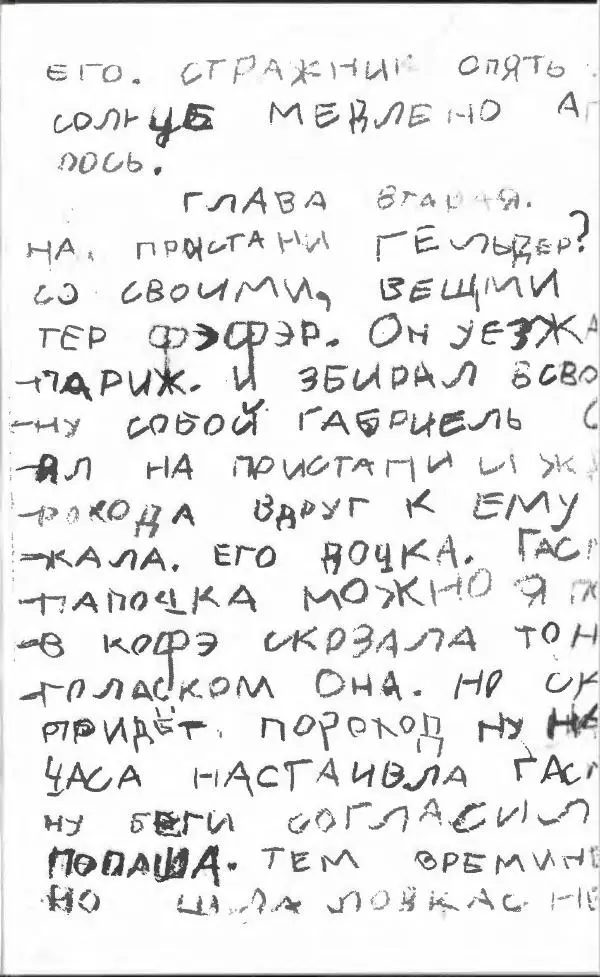 ЕГО. СТРАЖНИК ОПЯТЬ
СОЛНЦЕ МЕДЛЕНО
ЛОСЬ.
ГЛАВА ВТАРАЯ.
НА. ПРИСТАНИ ГЕЛЬДЕР?
СО СВОИМИ, ВЕЩМИ
ТЕР ФЭФЭР. ОН УЕЗЖА
ПАРИЖ. И ЗБИРАЛ ВСВО
НУ СОБОЙ ГАБРИЕЛЬ С
ЯЛ НА ПРИСТАНИ И ЖА
РОХОДА ВДРУГ К ЕМУ
ЖАЛА. ЕГО ДОЧКА. ГАСП
ПАПОЧКА МОЖНО Я
В КОФЭ СКОЗАЛА ТОН
ГОЛАСКОМ ОНА. НО СК
ПРИДЁТ. ПОРОХОД НУ НЕ
ЧАСА НАСТАИВЛА ГАСП
НУ БЕГИ СОГЛАСИЛ
ПОПАША. ТЕМ ВРЕМИНЕ
НО ШЛА